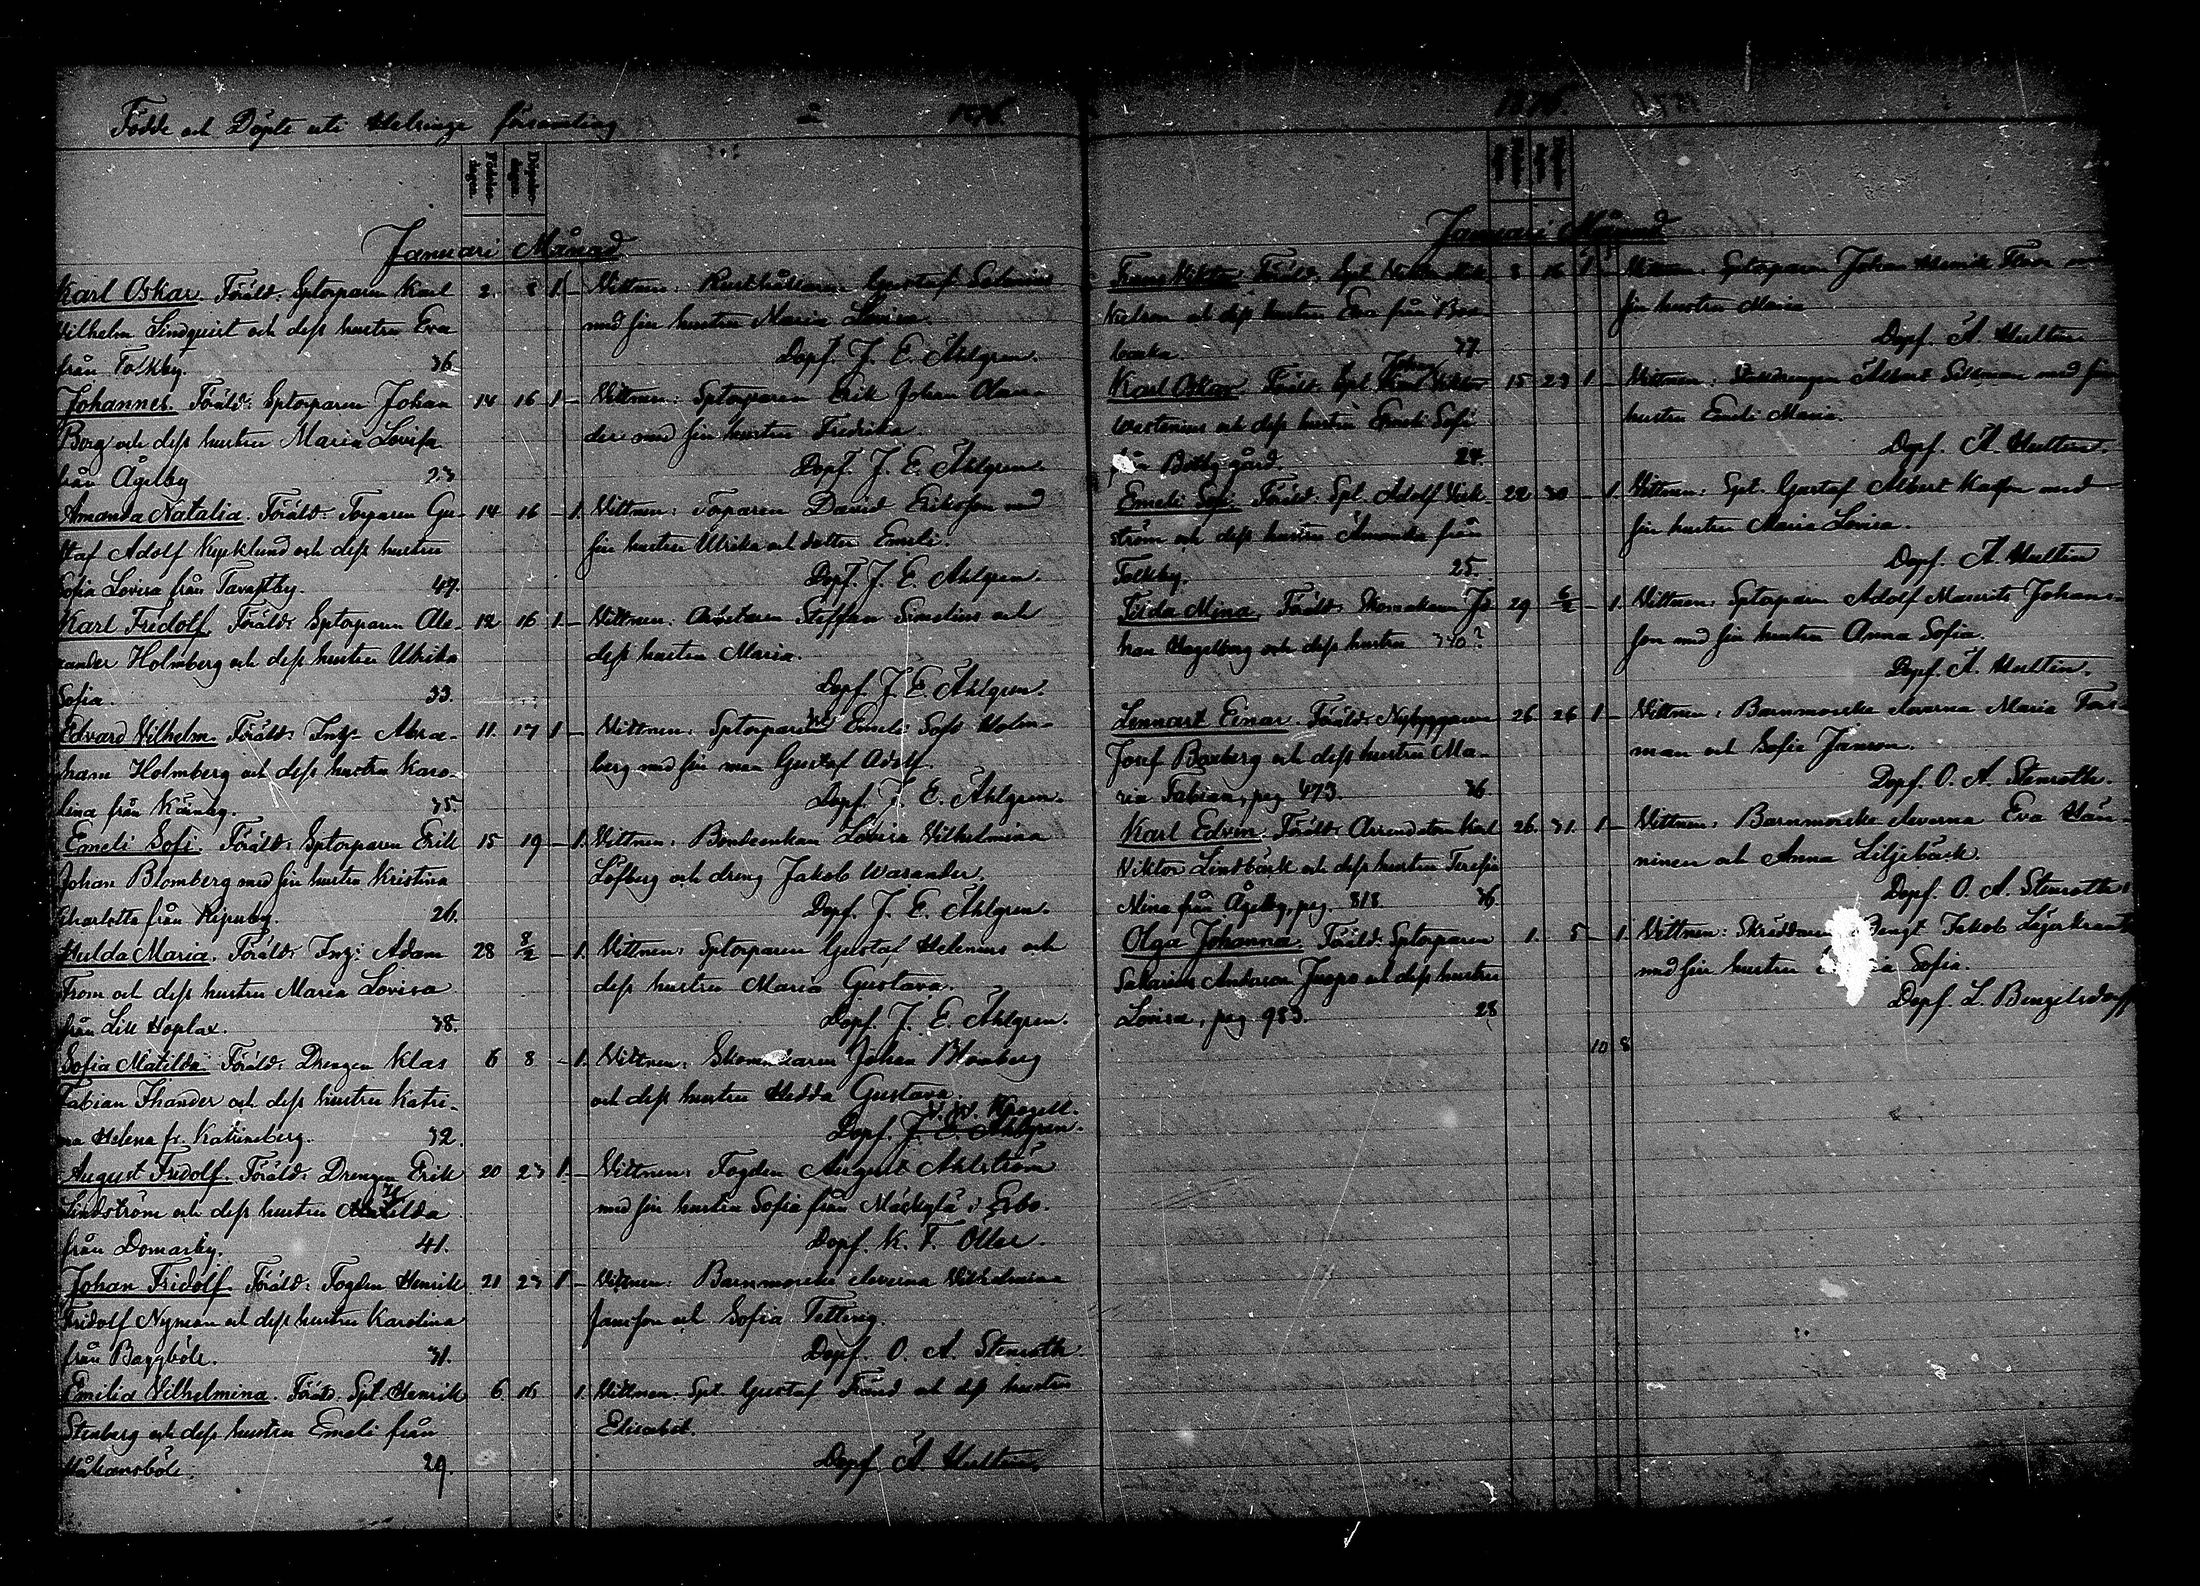 Födde och Döpte uti Helsinge församling år 1876
Födelse-dagen Döpelse-dagen
Januari Månad
Karl Oskar. Föräld: Sptorparen Karl 2. 8 1. –
Vilhelm Lindquist och dess hustru Eva
från Folkby. 36.
Vittnen: Rusthållaren Gustaf
med sin hustru Maria Lovisa.
Dopf. J. E. Åhlgren.
Johannes. Föräld: Sptorparen Johan 14 16 1. –
Berg och dess hustru Maria Lovisa
från Ågelby 23
Vittnen: Sptorparen Erik Johan Olan-
der med sin hustru Fredrika.
Dopf. J. E. Åhlgren.
Amanda Natalia. Föräld: Torparen Gu- 14 16 – 1.
staf Adolf Nycklund och dess hustru
Sofia Lovisa från Tavastby. 47.
Vittnen: Torparen David Eriksson med
sin hustru Ulrika och dotter Emeli.
Dopf. J. E. Åhlgren.
Karl Fridolf. Föräld: Sptorparen Ale- 12 16 1. –
xander Holmberg och dess hustru Ulrika
Sofia. 33.
Vittnen: Arbetaren Steffan Simelius och
dess hustru Maria.
Dopf. J. E. Åhlgren.
Edvard Vilhelm. Föräld: Inhys Abra- 11. 17 1 –
ham Holmberg och dess hustru Karo-
lina från Kårnby. 35.
Vittnen: Sptorpare Emeli Sofi Holm-
berg med sin man Gustaf Adolf.
Dopf. J. E. Åhlgren.
Emeli Sofi. Föräld: Sptorparen Erik 15 19 – 1.
Johan Blomberg med sin hustru Kristina
Charlotta från Ripuby. 26.
Vittnen: Bondeenkan Lovisa Vilhelmina
Löfberg och dreng Jakob Warander.
Dopf. J. E. Åhlgren.
Hulda Maria. Föräld: Inh: Adam 28 8/2 – 1.
From och dess hustru Maria Lovisa
från Lill Hoplax. 38.
Vittnen: Sptorparen Gustaf Helenius och
dess hustru Maria Gustava.
Dopf. J. E. Åhlgren.
Sofia Matilda. Föräld: Drengen Klas 6 8 – 1.
Fabian Thander och dess hustru Katri-
na Helena fr. Katrineberg. 32.
Vittnen: Skomakaren Johan Blomberg
och dess hustru Hedda Gustava.
Dopf. J. E. Åhlgren.
August Fridolf. Föräld: Drengen Erik 20 23 1. –
Lindström och dess hustru
från Domarby. 41.
Vittnen: Fogden August Ahlström
med sin hustru Sofia från Mäckylä i Esbo.
Dopf. K. F. Oller.
Johan Fridolf. Föräld: Fogden Henrik 21 23 1. –
Fridolf Nyman och dess hustru Karolina
från Baggböle. 31.
Vittnen: Barnmorske eleverna Vilhelmina
Jansson och Sofia Tetting.
Dopf. O. A. Stenroth.
Emilia Vilhelmina. Föräld: Spt. Henrik 6 16 1.
Stenberg och dess hustru Emeli från
Håkansböle. 29.
Vittnen: Spt. Gustaf Frand och dess hustru
Elisabet.
Dopf. A. Hultin.
1876.
Januari Månad
Frans Viktor. Föräld: Spt. 8 16 1 –
och dess hustru Eva från Bon-
backa. 37.
Vittnen: Sptorparen Johan Henrik med
sin hustru Maria
Dopf. A. Hultin
Karl Oskar. Föräld: Spt. Johan Viktor 15 23 1 –
Westenius och dess hustru Emeli Sofi
från Botby gård. 24.
Vittnen: Albert med sin
hustru Emeli Maria.
Dopf. A. Hultin.
Emeli Sofi. Föräld: Spt. Adolf Vik- 22 30 – 1.
ström och dess hustru Amanda från
Folkby. 25.
Vittnen: Spt. Gustaf Albert med
sin hustru Maria Lovisa.
Dopf. A. Hultin
Frida Mina. Föräld: Skomakaren Jo- 29 6/2 – 1.
han Hagelberg och dess hustru 340?
Vittnen: Sptorparen Adolf Maurits Johans-
son med sin hustru Anna Sofia.
Dopf. A. Hultin.
Lennart Einar. Föräld: Nybyggaren 26 26 1 –
Josef Boxberg och dess hustru Ma-
ria Fabian, pag. 473. 36.
Vittnen: Barnmorske eleverna Maria Fors-
man och Sofia Janson.
Dopf. O. A. Stenroth.
Karl Edvin. Föräld: Arrendatorn Karl 26. 31. 1 –
Viktor Lindbäck och dess hustru Teresia
Mina från Ågelby, pag. 818. 36.
Vittnen: Barnmorske eleverna Eva Hän-
ninen och Anna Liljebäck.
Dopf. O. A. Stenroth.
Olga Johanna. Föräld: Sptorparen 1. 5 – 1.
Sakarias Anderson Juopo och dess hustru
Lovisa, pag. 983. 28
Vittnen: Skräddare Bengt Jakob
med sin hustru Sofia.
Dopf. L. Bengelsdorff
10 8